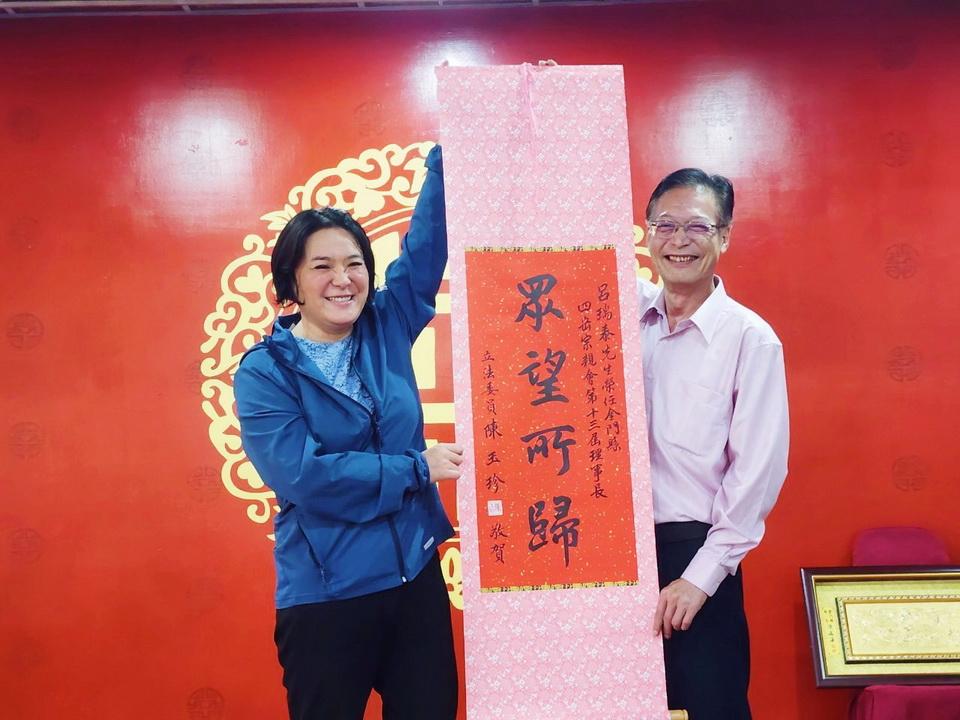 呂瑞泰先生榮任金門縣
四岳宗親會第十三屆理事長
眾望所歸
立法委員陳玉珍 敬賀